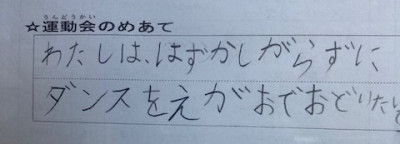 うんどうかい
☆運動会のめあて
わたしは、はずかしがらずに
ダンスをえがおでおどりたい